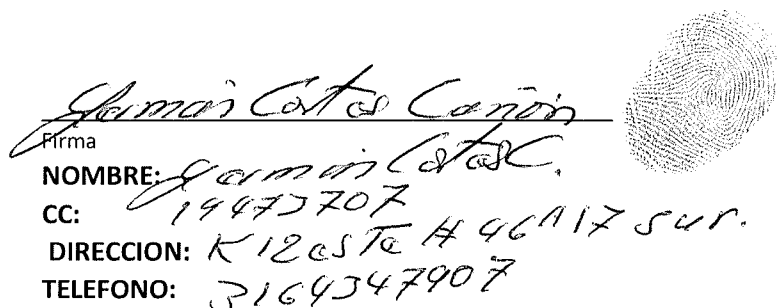 Germán Cortes Cañón
Firma
NOMBRE: Germán Cortes C.
CC: 19473707
DIRECCION: K 12 este # 46A 17 sur.
TELEFONO: 3164347907